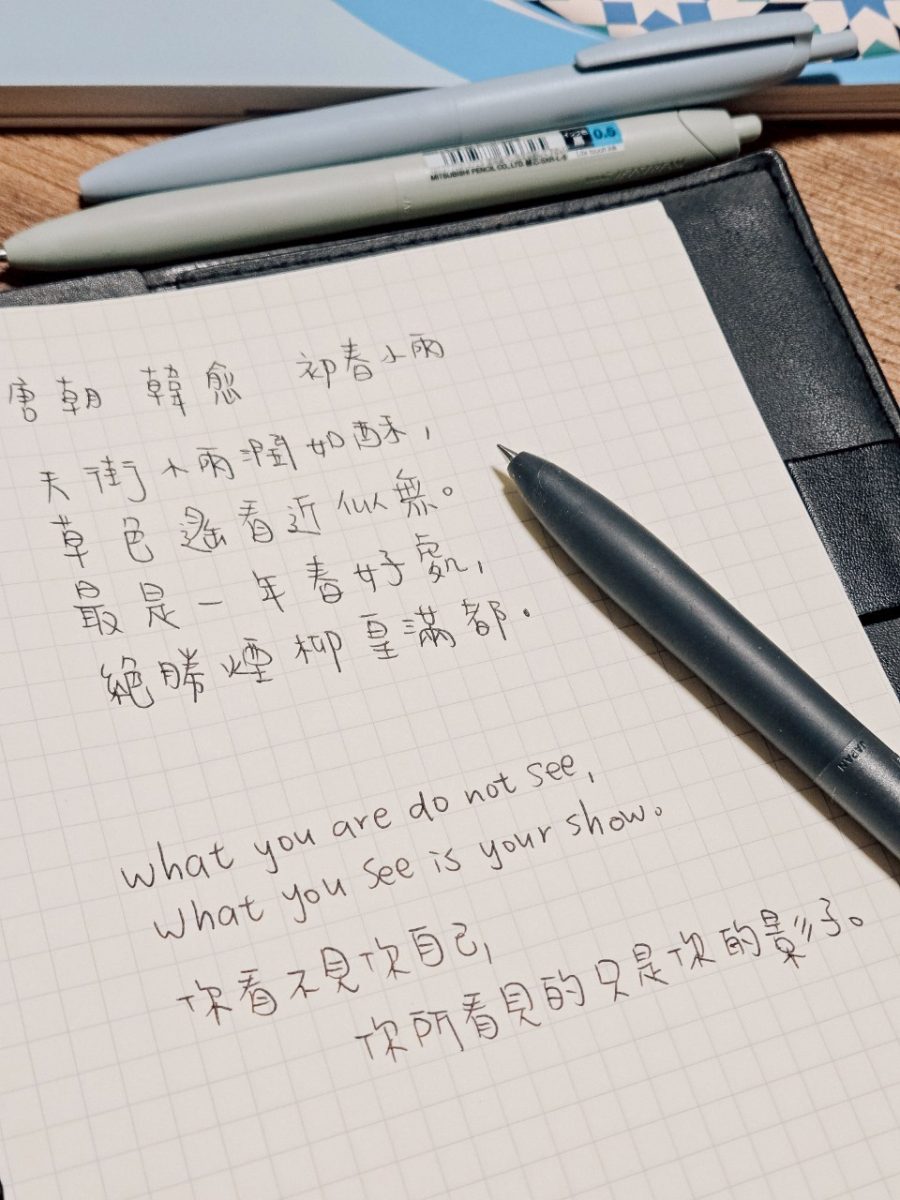 0.5
MITSUBISHI PENCIL CO., LTD.
唐朝 韓愈 初春小雨
天街小雨潤如酥,
草色遙看近似無。
最是一年春好處,
絕勝煙柳皇滿都.
JAPAN
what you are do not see,
what you see is your show.
你看不見你自己,
你所看見的只是你的影子。